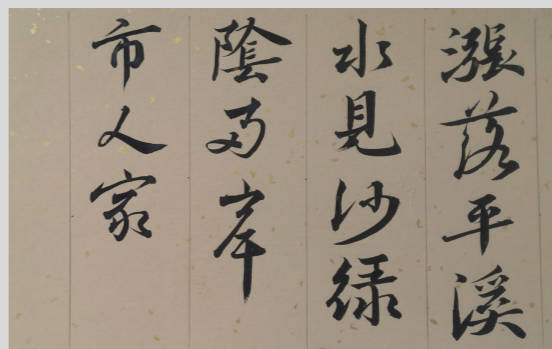 漲落平溪
水見沙緑
蔭兩岸
市人家